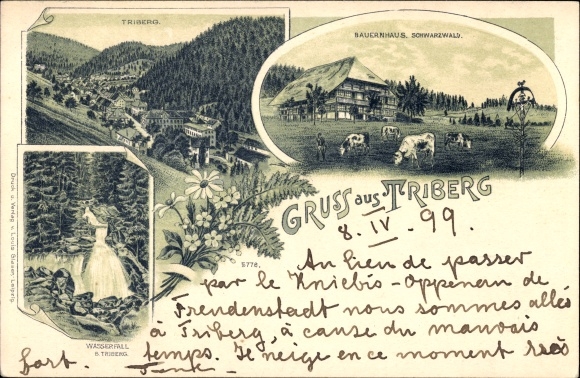 TRIBERG.
BAUERNHAUS. SCHWARZWALD.
GRUSS aus TRIBERG
8. IV. 99.
5772.
Druck u. Verlag v. Louis Glaser, Leipzig.
WASSERFALL
B. TRIBERG.
Au lieu de passer
par le Kniebis-Oppenau de
Freudenstadt nous sommes allés
à Triberg, à cause du mauvais
temps. Je neige en ce moment très
fort.